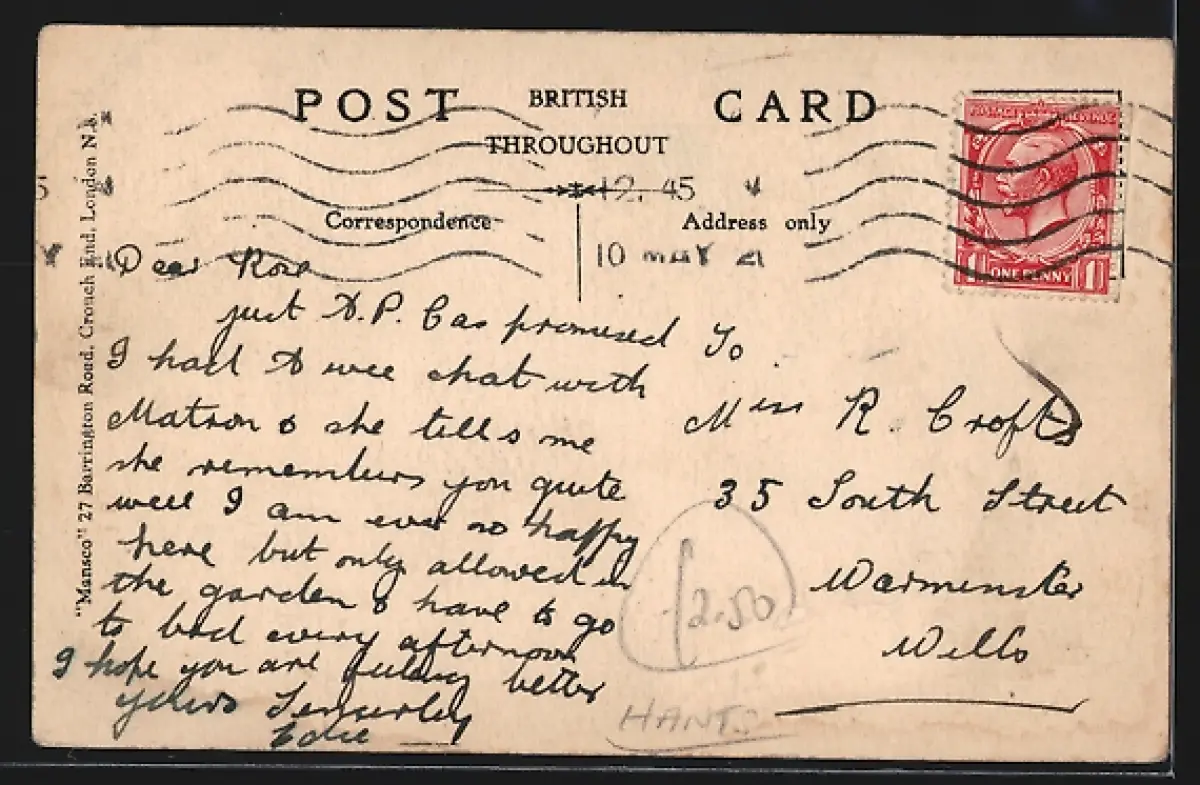 POST BRITISH CARD
THROUGHOUT
12.45
10 MAY 21
Correspondence
Address only
"Mansco" 27 Barrington Road, Crouch End, London N.8.
POSTAGE REVENUE
1 ONE PENNY 1
Dear Rose
just A.P.C as promised
I had A wee chat with
Matron & she tells me
she remembers you quite
well I am ever so happy
here but only allowed in
the garden & have to go
to bed every afternoon
I hope you are feeling better
yours Sincerley
Edie
To
Miss R. Crofts
35 South Street
Warminster
Wilts
2.50
HANTS